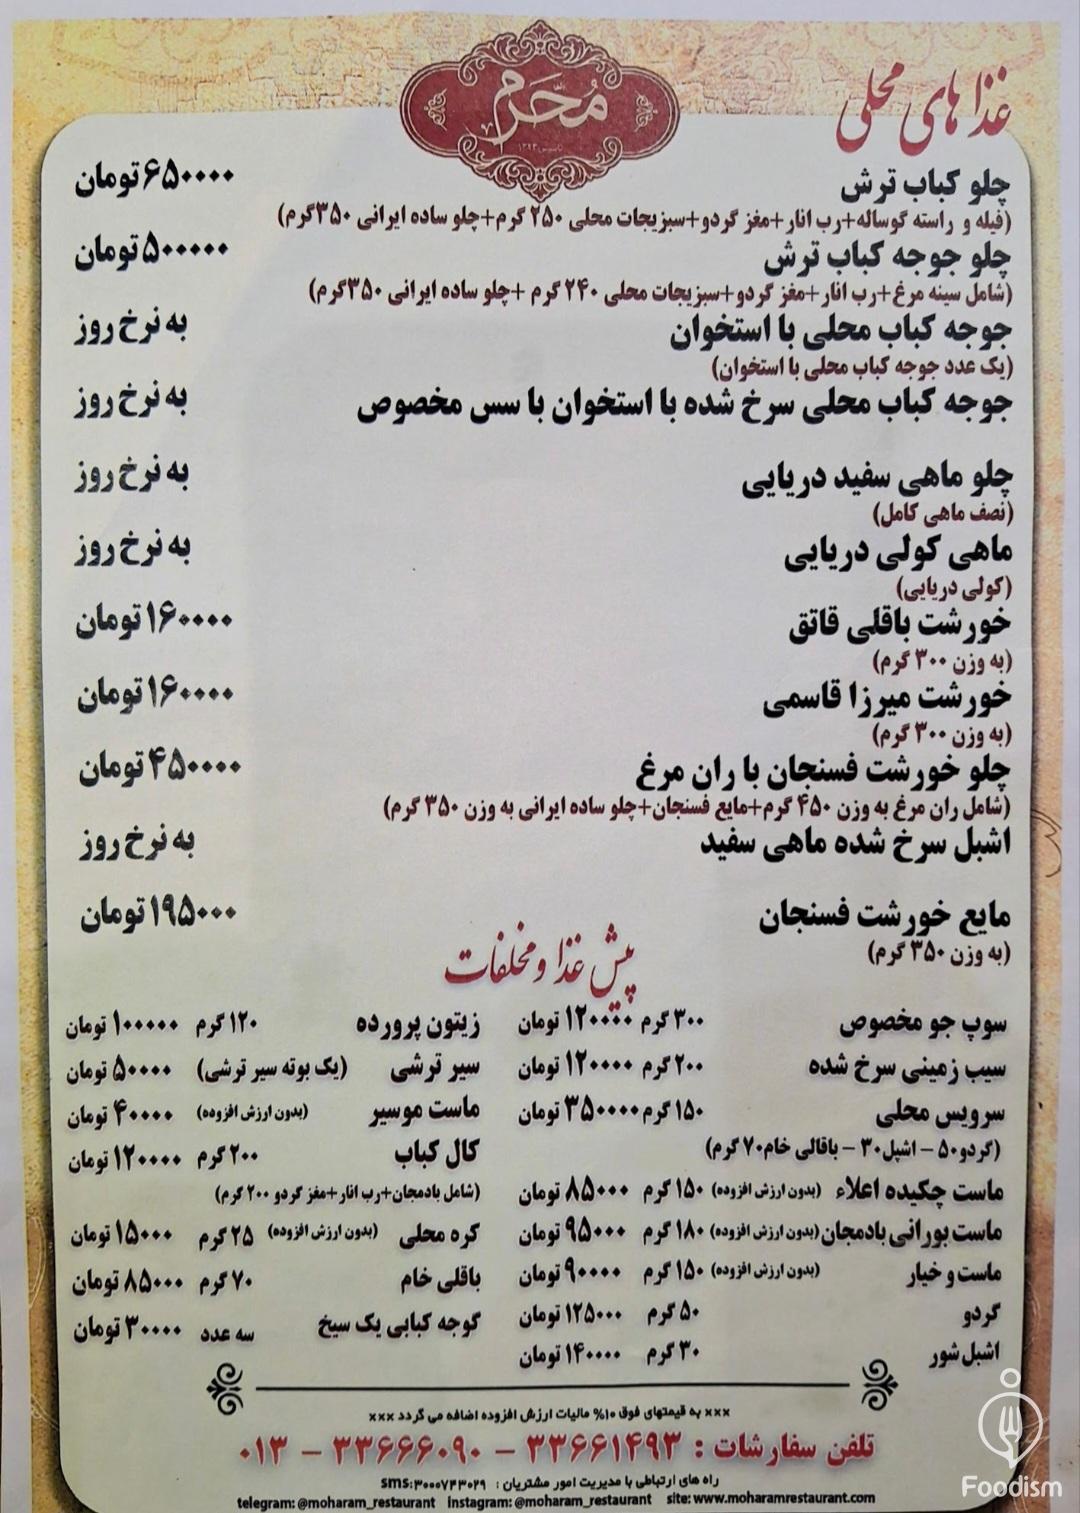 محرم
تاسیس ۱۳۹۳
غذا های محلی
چلو کباب ترش ۶۵۰۰۰۰ تومان
(فیله و راسته گوساله+رب انار+مغز گردو+سبزیجات محلی ۲۵۰ گرم+چلو ساده ایرانی ۳۵۰گرم)
چلو جوجه کباب ترش ۵۰۰۰۰۰ تومان
(شامل سینه مرغ+رب انار+مغز گردو+سبزیجات محلی ۲۴۰ گرم +چلو ساده ایرانی ۳۵۰گرم)
جوجه کباب محلی با استخوان به نرخ روز
(یک عدد جوجه کباب محلی با استخوان)
جوجه کباب محلی سرخ شده با استخوان با سس مخصوص به نرخ روز
چلو ماهی سفید دریایی به نرخ روز
(نصف ماهی کامل)
ماهی کولی دریایی به نرخ روز
(کولی دریایی)
خورشت باقلی قاتق ۱۶۰۰۰۰ تومان
(به وزن ۳۰۰ گرم)
خورشت میرزا قاسمی ۱۶۰۰۰۰ تومان
(به وزن ۳۰۰ گرم)
چلو خورشت فسنجان با ران مرغ ۴۵۰۰۰۰ تومان
(شامل ران مرغ به وزن ۴۵۰ گرم+مایع فسنجان+چلو ساده ایرانی به وزن ۳۵۰ گرم)
اشبل سرخ شده ماهی سفید به نرخ روز
مایع خورشت فسنجان ۱۹۵۰۰۰ تومان
(به وزن ۳۵۰ گرم)
پیش غذا و مخلفات
سوپ جو مخصوص ۳۰۰ گرم ۱۲۰۰۰۰ تومان
سیب زمینی سرخ شده ۲۰۰ گرم ۱۲۰۰۰۰ تومان
سرویس محلی ۱۵۰ گرم ۳۵۰۰۰۰ تومان
(گردو۵۰ – اشپل۳۰ – باقالی خام۷۰ گرم)
ماست چکیده اعلاء (بدون ارزش افزوده) ۱۵۰ گرم ۸۵۰۰۰ تومان
ماست بورانی بادمجان (بدون ارزش افزوده) ۱۸۰ گرم ۹۵۰۰۰ تومان
ماست و خیار (بدون ارزش افزوده) ۱۵۰ گرم ۹۰۰۰۰ تومان
گردو ۵۰ گرم ۱۲۵۰۰۰ تومان
اشبل شور ۳۰ گرم ۱۴۰۰۰۰ تومان
زیتون پرورده ۱۲۰ گرم ۱۰۰۰۰۰ تومان
سیر ترشی (یک بوته سیر ترشی) ۵۰۰۰۰ تومان
ماست موسیر (بدون ارزش افزوده) ۴۰۰۰۰ تومان
کال کباب ۲۰۰ گرم ۱۲۰۰۰۰ تومان
(شامل بادمجان+رب انار+مغز گردو ۲۰۰ گرم)
کره محلی (بدون ارزش افزوده) ۲۵ گرم ۱۵۰۰۰ تومان
باقلی خام ۷۰ گرم ۸۵۰۰۰ تومان
گوجه کبابی یک سیخ سه عدد ۳۰۰۰۰ تومان
××× به قیمتهای فوق ۱۰% مالیات ارزش افزوده اضافه می گردد ×××
تلفن سفارشات : ۳۳۶۶۱۴۹۳ – ۳۳۶۶۶۰۹۰ – ۰۱۳
راه های ارتباطی با مدیریت امور مشتریان : sms:۳۰۰۰۷۴۳۰۲۹
telegram: @moharam_restaurant instagram: @moharam_restaurant site: www.moharamrestaurant.com
Foodism